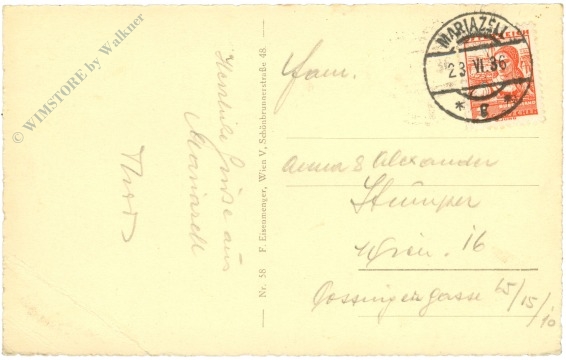 © WIMSTORE by Walkner
Herzliche Grüße aus
Mariazell
Nr. 58 F. Eisenmenger, Wien V, Schönbrunnerstraße 48.
MARIAZELL
23.VI.36
* g *
Fam.
Anna & Alexander
Stümper
Wien. 16
gasse 15/15/10